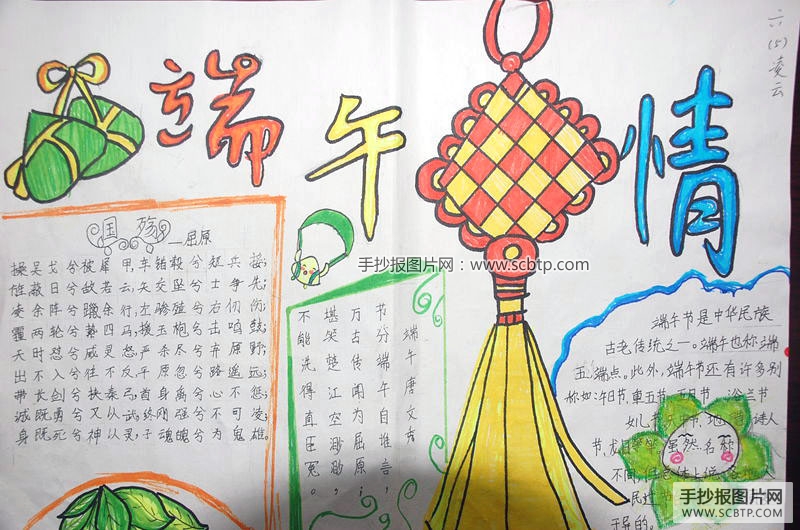 端午情
六(5)凌云
国殇
——屈原
操吴戈兮被犀甲,车错毂兮短兵接;
旌蔽日兮敌若云,矢交坠兮士争先;
凌余阵兮躐余行,左骖殪兮右刃伤;
霾两轮兮絷四马,援玉枹兮击鸣鼓;
天时怼兮威灵怒,严杀尽兮弃原野;
出不入兮往不反,平原忽兮路遥远;
带长剑兮扶秦弓,首身离兮心不惩;
诚既勇兮又从武,终刚强兮不可凌;
身既死兮神以灵,子魂魄兮为鬼雄。
端午 唐 文秀
节分端午自谁言,
万古传闻为屈原;
堪笑楚江空渺渺,
不能洗得直臣冤。
端午节是中华民族
古老传统之一。端午也称端
五,端点。此外,端午节还有许多别
称如:午日节,重五节,
浴兰节
女儿节
诗人
节,
虽然名称
不同,但总体上说
手抄报图片网:www.scbtp.com
手抄报图片网
WWW.SCBTP.COM